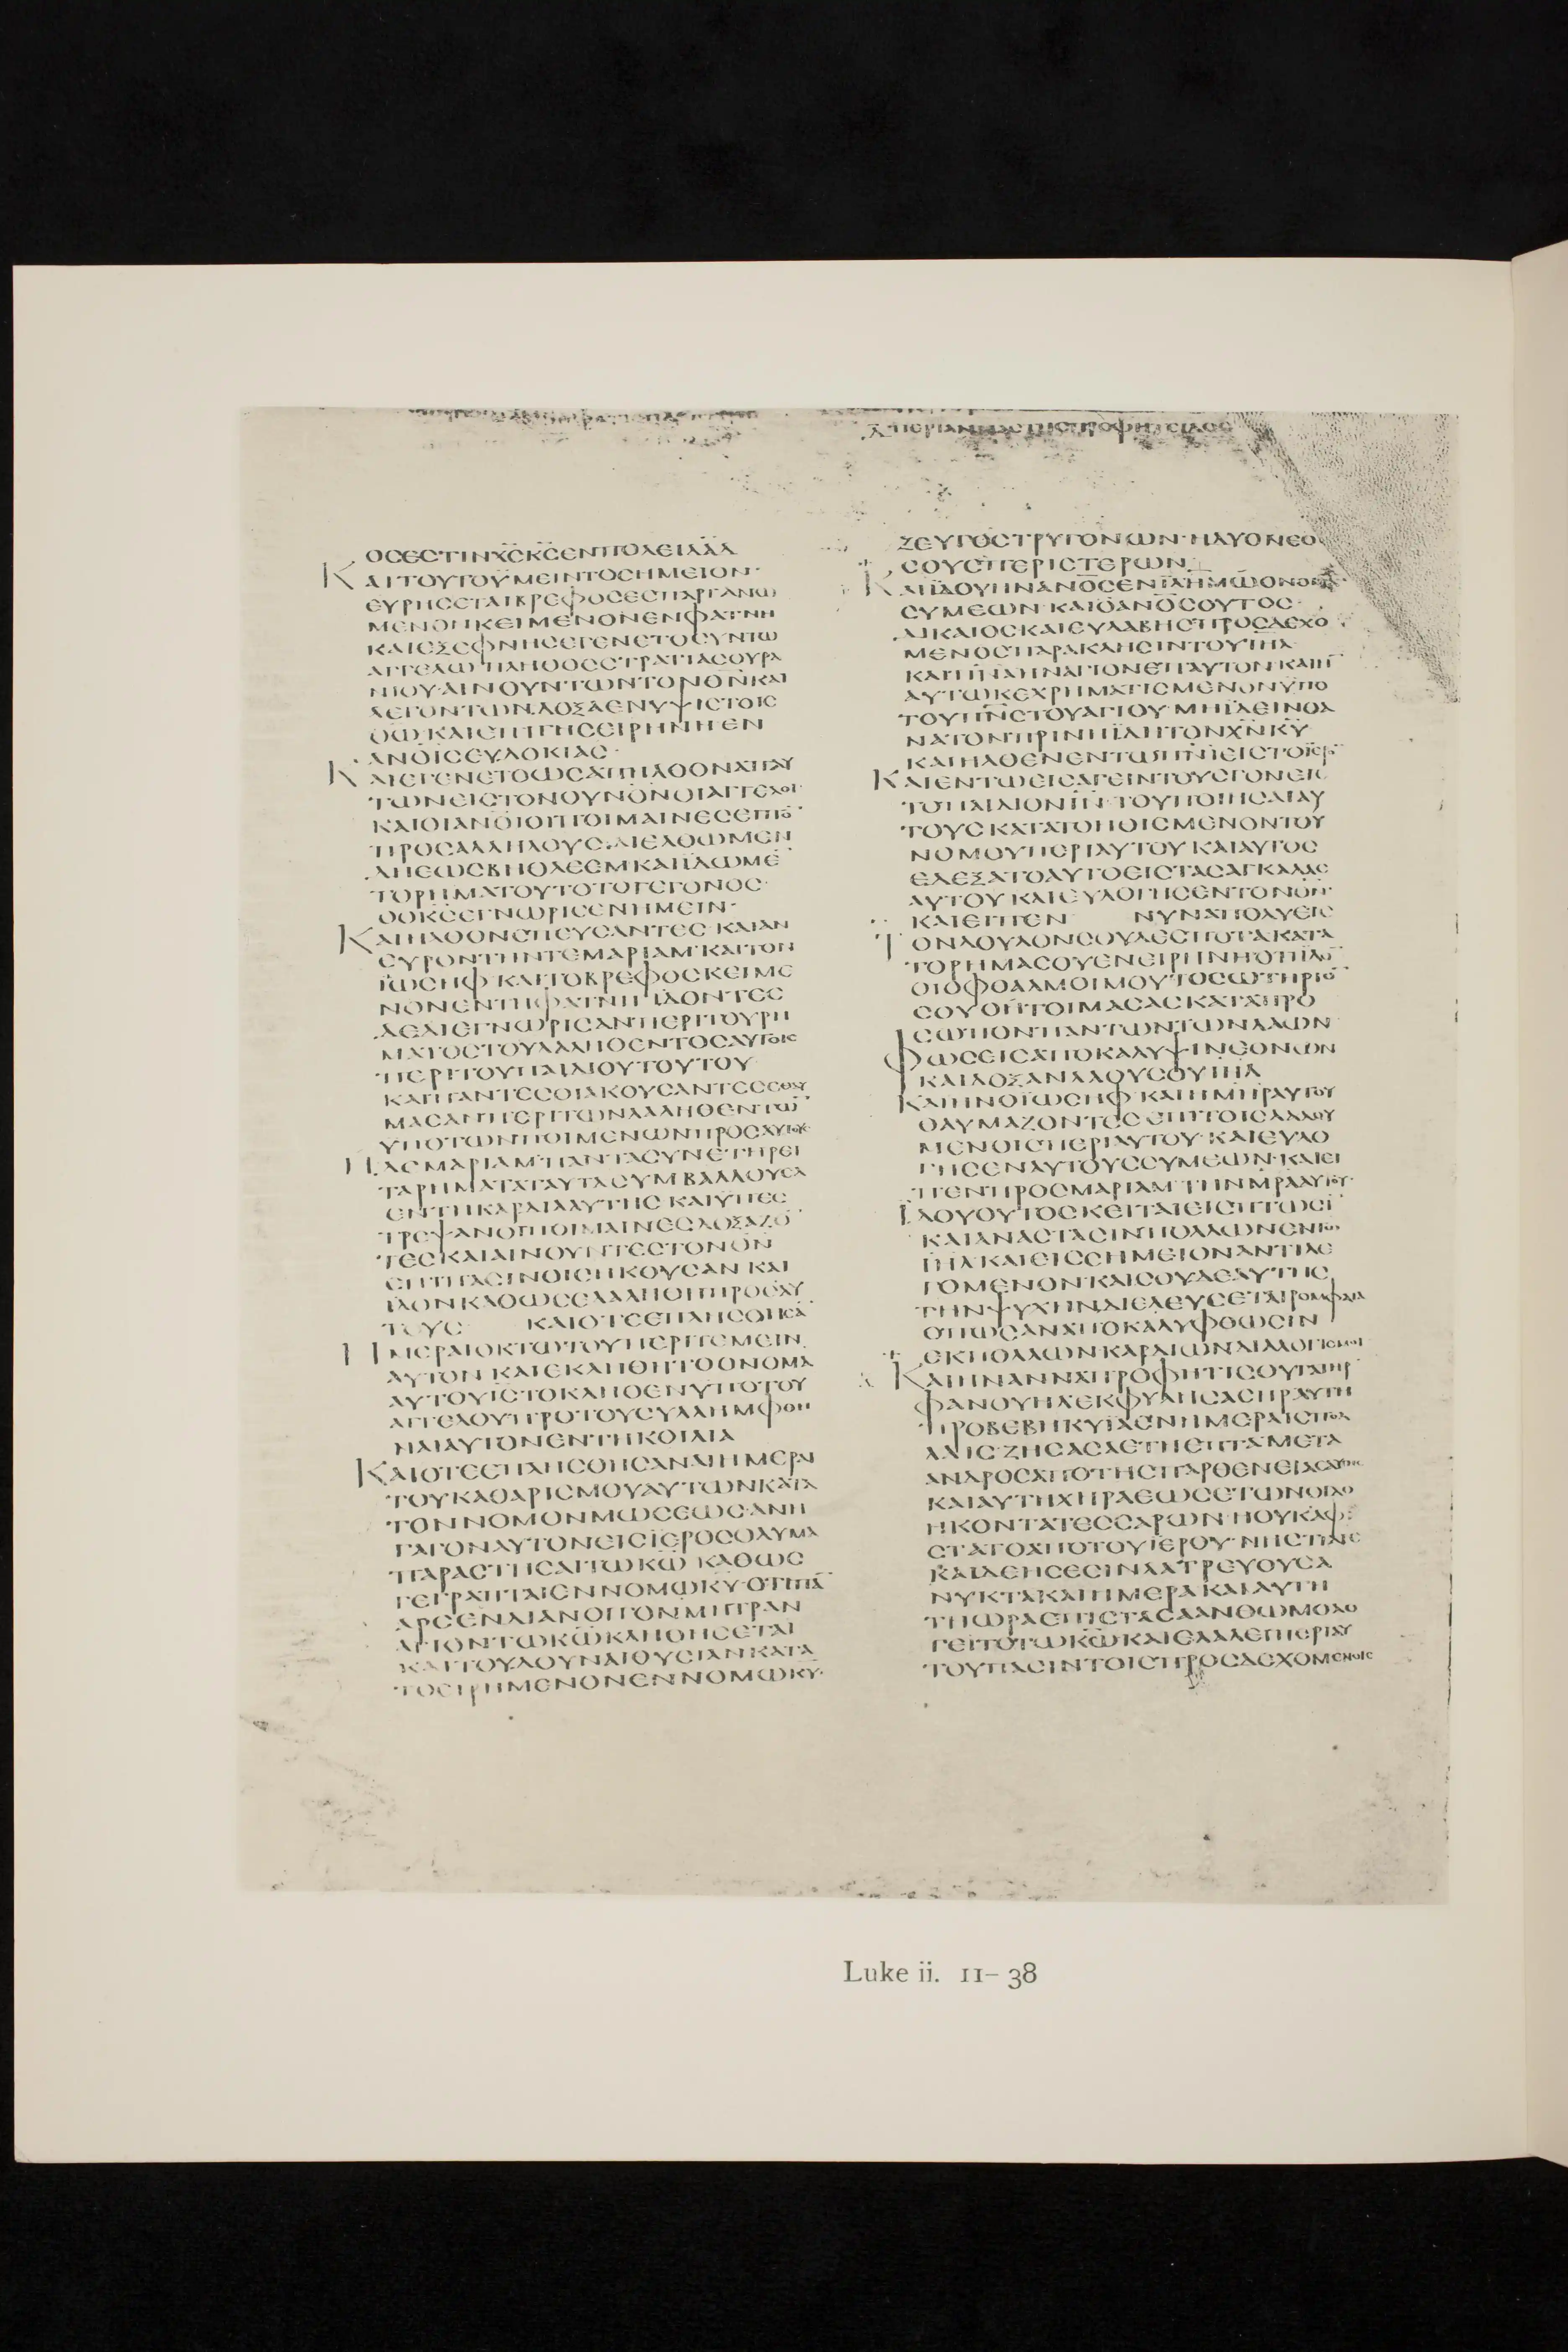 ΟCΕCΤΙΝΧ̅C̅Κ̅C̅ΕΝΠΟΛΕΙΔ̅Α̅Δ̅
ΚΑΙΤΟΥΤΟΫΜΕΙΝΤΟCΗΜΕΙΟΝ·
ΕΥΡΗCΕΤΑΙΒΡΕΦΟCΕCΠΑΡΓΑΝΩ
ΜΕΝΟΝΚΕΙΜΕΝΟΝΕΝΦΑΤΝΗ
ΚΑΙΕΞΕΦΝΗCΕΓΕΝΕΤΟCΥΝΤΩ
ΑΓΓΕΛΩΠΛΗΘΟCCΤΡΑΤΙΑCΟΥΡΑ
ΝΙΟΥ·ΑΙΝΟΥΝΤΩΝΤΟΝΘ̅Ν̅ΚΑΙ
ΛΕΓΟΝΤΩΝ·ΔΟΞΑΕΝΥΨΙCΤΟΙC
Θ̅Ω̅·ΚΑΙΕΠΙΓΗCΕΙΡΗΝΗΕΝ
ΑΝ̅Ο̅Ι̅C̅ΕΥΔΟΚΙΑC·
ΚΑΙΕΓΕΝΕΤΟΩCΑΠΗΛΘΟΝΑΠΑΥ
ΤΩΝΕΙCΤΟΝΟΥΝ̅Ο̅Ν̅ΟΙΑΓΓΕΛΟΙ·
ΚΑΙΟΙΑΝ̅Ο̅Ι̅ΟΙΠΟΙΜΑΙΝΕCΕΙΠΟ̅
ΠΡΟCΑΛΛΗΛΟΥC·ΔΙΕΛΘΩΜΕΝ
ΔΗΕΩCΒΗΘΛΕΕΜΚΑΙΪΔΩΜΕ̅
ΤΟΡΗΜΑΤΟΥΤΟΤΟΓΕΓΟΝΟC·
ΟΟΚ̅C̅ΕΓΝΩΡΙCΕΝΗΜΕΙΝ·
ΚΑΙΗΛΘΟΝCΠΕΥCΑΝΤΕC·ΚΑΙΑΝ
ΕΥΡΟΝΤΗΝΤΕΜΑΡΙΑΜ·ΚΑΙΤΟΝ
ΪΩCΗΦ·ΚΑΙΤΟΒΡΕΦΟCΚΕΙΜΕ
ΝΟΝΕΝΤΗΦΑΤΝΗ·ΪΔΟΝΤΕC
ΔΕΔΙΕΓΝΩΡΙCΑΝΠΕΡΙΤΟΥΡΗ
ΜΑΤΟCΤΟΥΛΑΛΗΘΕΝΤΟCΑΥΤΟΙC
ΠΕΡΙΤΟΥΠΑΙΔΙΟΥΤΟΥΤΟΥ
ΚΑΙΠΑΝΤΕCΟΙΑΚΟΥCΑΝΤΕCΕΘΑΥ
ΜΑCΑΝΠΕΡΙΤΩΝΛΑΛΗΘΕΝΤΩ̅
ΥΠΟΤΩΝΠΟΙΜΕΝΩΝΠΡΟCΑΥΤΟΥC
ΗΔΕΜΑΡΙΑΜΠΑΝΤΑCΥΝΕΤΗΡΕΙ
ΤΑΡΗΜΑΤΑΤΑΥΤΑCΥΜΒΑΛΛΟΥCΑ
ΕΝΤΗΚΑΡΔΙΑΑΥΤΗC·ΚΑΙΫΠΕC
ΤΡΕΨΑΝΟΙΠΟΙΜΑΙΝΕCΔΟΞΑΖΟ̅
ΤΕCΚΑΙΑΙΝΟΥΝΤΕCΤΟΝΘ̅Ν̅
ΕΠΙΠΑCΙΝΟΙCΗΚΟΥCΑΝ ΚΑΙ
ΪΔΟΝΚΑΘΩCΕΛΑΛΗΘΗΠΡΟCΑΥ
ΤΟΥC ΚΑΙΟΤΕΕΠΛΗCΘΗCΑ̅
ΗΜΕΡΑΙΟΚΤΩΤΟΥΠΕΡΙΤΕΜΕΙΝ
ΑΥΤΟΝ ΚΑΙΕΚΛΗΘΗΤΟΟΝΟΜΑ
ΑΥΤΟΥΙ̅C̅ΤΟΚΛΗΘΕΝΥΠΟΤΟΥ
ΑΓΓΕΛΟΥΠΡΟΤΟΥCΥΛΛΗΜΦΘΗ
ΝΑΙΑΥΤΟΝΕΝΤΗΚΟΙΛΙΑ
ΚΑΙΟΤΕΕΠΛΗCΘΗCΑΝΑΙΗΜΕΡΑΙ
ΤΟΥΚΑΘΑΡΙCΜΟΥΑΥΤΩΝΚΑΤΑ
ΤΟΝΝΟΜΟΝΜΩCΕΩC·ΑΝΗ
ΓΑΓΟΝΑΥΤΟΝΕΙCΪΕΡΟCΟΛΥΜΑ
ΠΑΡΑCΤΗCΑΙΤΩΚ̅Ω̅ ΚΑΘΩC
ΓΕΓΡΑΠΤΑΙΕΝΝΟΜΩΚ̅Υ̅·ΟΤΙΠΑ̅
ΑΡCΕΝΔΙΑΝΟΙΓΟΝΜΗΤΡΑΝ
ΑΓΙΟΝΤΩΚ̅Ω̅ΚΛΗΘΗCΕΤΑΙ
ΚΑΙΤΟΥΔΟΥΝΑΙΘΥCΙΑΝΚΑΤΑ
ΤΟΕΙΡΗΜΕΝΟΝΕΝΝΟΜΩΚ̅Υ̅·
ΖΕΥΓΟCΤΡΥΓΟΝΩΝ·ΗΔΥΟΝΕΟ
CΟΥCΠΕΡΙCΤΕΡΩΝ
ΚΑΙΪΔΟΥΗΝΑΝ̅Ο̅C̅ΕΝΪ̅Λ̅Η̅Μ̅ΩΟΝΟΜΑ
CΥΜΕΩΝ·ΚΑΙΟΑΝ̅Ο̅C̅ΟΥΤΟC·
ΔΙΚΑΙΟCΚΑΙΕΥΛΑΒΗCΠΡΟCΔΕΧΟ
ΜΕΝΟCΠΑΡΑΚΛΗCΙΝΤΟΥΙ̅Η̅Λ̅
ΚΑΙΠ̅Ν̅Α̅ΗΝΑΓΙΟΝΕΠΑΥΤΟΝ·ΚΑΙΗ̅
ΑΥΤΩΚΕΧΡΗΜΑΤΙCΜΕΝΟΝΫΠΟ
ΤΟΥΠ̅Ν̅C̅ΤΟΥΑΓΙΟΥ·ΜΗΪΔΕΙΝΘΑ
ΝΑΤΟΝΠΡΙΝΗΪΔΗΤΟΝΧ̅Ν̅Κ̅Υ̅
ΚΑΙΗΛΘΕΝΕΝΤΩΠ̅Ν̅Ι̅ΕΙCΤΟΪΕΡΟ̅
ΚΑΙΕΝΤΩΕΙCΑΓΕΙΝΤΟΥCΓΟΝΕΙC
ΤΟΠΑΙΔΙΟΝΙ̅Ν̅·ΤΟΥΠΟΙΗCΑΙΑΥ
ΤΟΥCΚΑΤΑΤΟΗΘΙCΜΕΝΟΝΤΟΥ
ΝΟΜΟΥΠΕΡΙΑΥΤΟΥ·ΚΑΙΑΥΤΟC
ΕΔΕΞΑΤΟΑΥΤΟΕΙCΤΑCΑΓΚΑΛΑC
ΑΥΤΟΥ·ΚΑΙΕΥΛΟΓΗCΕΝΤΟΝΘ̅Ν̅·
ΚΑΙΕΙΠΕΝ ΝΥΝΑΠΟΛΥΕΙC
ΤΟΝΔΟΥΛΟΝCΟΥΔΕCΠΟΤΑΚΑΤΑ
ΤΟΡΗΜΑCΟΥΕΝΕΙΡΗΝΗΟΤΙΪΔΟ̅
ΟΙΟΦΘΑΛΜΟΙΜΟΥΤΟCΩΤΗΡΙΟ̅
CΟΥΟΗΤΟΙΜΑCΑCΚΑΤΑΠΡΟ
CΩΠΟΝΠΑΝΤΩΝΤΩΝΛΑΩΝ
ΦΩCΕΙCΑΠΟΚΑΛΥΨΙΝΕΘΝΩΝ
ΚΑΙΔΟΞΑΝΛΑΟΥCΟΥΙ̅Η̅Λ̅
ΚΑΙΗΝΟΪΩCΗΦ·ΚΑΙΗΜ̅Η̅Ρ̅ΑΥΤΟΥ
ΘΑΥΜΑΖΟΝΤΕCΕΠΙΤΟΙCΛΑΛΟΥ
ΜΕΝΟΙCΠΕΡΙΑΥΤΟΥ·ΚΑΙΕΥΛΟ
ΓΗCΕΝΑΥΤΟΥCCΥΜΕΩΝ·ΚΑΙΕΙ
ΠΕΝΠΡΟCΜΑΡΙΑΜ·ΤΗΝΜ̅Ρ̅Α̅ΑΥΤΟΥ·
ΪΔΟΥΟΥΤΟCΚΕΙΤΑΙΕΙCΠΤΩCΙ̅
ΚΑΙΑΝΑCΤΑCΙΝΠΟΛΛΩΝΕΝΤΩ
Ι̅Η̅Λ̅ΚΑΙΕΙCCΗΜΕΙΟΝΑΝΤΙΛΕ
ΓΟΜΕΝΟΝ·ΚΑΙCΟΥΔΕΑΥΤΗC
ΤΗΝΨΥΧΗΝΔΙΕΛΕΥCΕΤΑΙΡΟΜΦΑΙΑ
ΟΠΩCΑΝΑΠΟΚΑΛΥΦΘΩCΙΝ
ΕΚΠΟΛΛΩΝΚΑΡΔΙΩΝΔΙΑΛΟΓΙCΜΟΙ
ΚΑΙΗΝΑΝΝΑΠΡΟΦΗΤΙCΘΥΓΑΤΗΡ
ΦΑΝΟΥΗΛ·ΕΚΦΥΛΗCΑCΗΡΑΥΤΗ
ΠΡΟΒΕΒΗΚΥΪΑΕΝΗΜΕΡΑΙCΠΟΛ
ΛΑΙC·ΖΗCΑCΑΕΤΗΕΠΤΑΜΕΤΑ
ΑΝΔΡΟCΑΠΟΤΗCΠΑΡΘΕΝΕΙΑCΑΥΤΗC
ΚΑΙΑΥΤΗΧΗΡΑΕΩCΕΤΩΝΟΓΔΟ
ΗΚΟΝΤΑΤΕCCΑΡΩΝ·ΗΟΥΚΑΦ
CΤΑΤΟΑΠΟΤΟΥΪΕΡΟΥ·ΝΗCΤΙΑΙC
ΚΑΙΔΕΗCΕCΙΝΛΑΤΡΕΥΟΥCΑ
ΝΥΚΤΑΚΑΙΗΜΕΡΑΚΑΙΑΥΤΗ
ΤΗΩΡΑΕΠΙCΤΑCΑΑΝΘΩΜΟΛΟ
ΓΕΙΤΟΤΩΚ̅Ω̅ΚΑΙΕΛΑΛΕΙΠΕΡΙΑΥ
ΤΟΥΠΑCΙΝΤΟΙCΠΡΟCΔΕΧΟΜΕΝΟΙC
Luke ii. 11–38